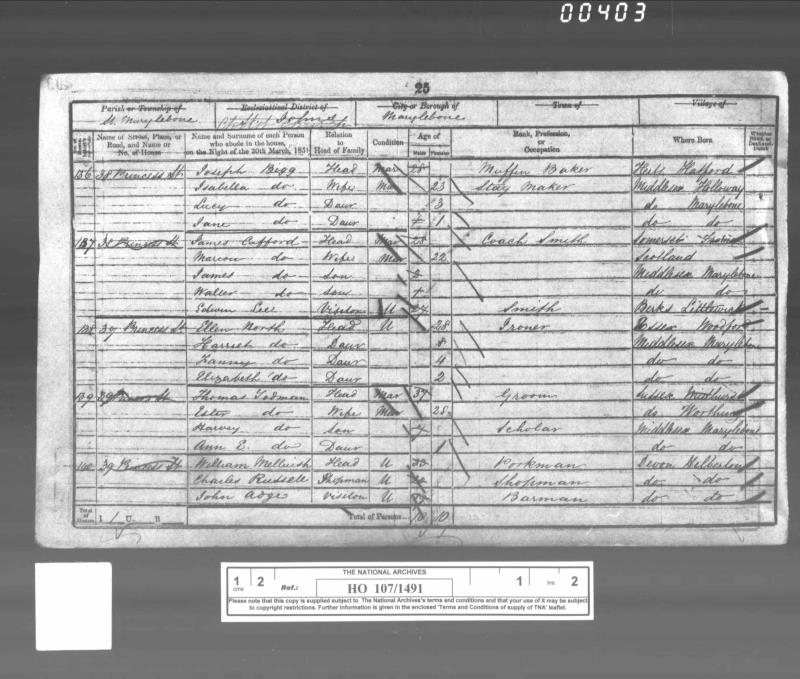 00403
25
Parish or Township of Ecclesiastical District of City or Borough of Town of Village of
St. Marylebone Marylebone
Name of Street, Place, or Road, and Name or No. of House
Name and Surname of each Person who abode in the house, on the Night of the 30th March, 1851
Relation to Head of Family
Condition
Age of
Males Females
Rank, Profession, or Occupation
Where Born
136 38 Princess St Joseph Bigg Head Mar 28 Muffin Baker Herts
Isabella do Wife Mar 23 Stay Maker Middlesex Holloway
Lucy do Daur 3 do Marylebone
Jane do Daur 1 do do
137 38 Princess St James Head Mar 28 Coach Smith Somerset
Marion do Wife Mar 22 Scotland
James do Son Middlesex Marylebone
Walter do Son do do
Edwin Lee Visitor U Smith Berks
138 39 Princess St Ellen North Head U 28 Ironer Essex Woodford
Harriet do Daur 8 Middlesex Marylebone
Fanny do Daur 4 do do
Elizabeth do Daur 2 do do
139 39 Thomas Head Mar 37 Groom Sussex
Ester do Wife Mar 28 do
Harvey do Son Scholar Middlesex Marylebone
Ann E. do Daur 1 do do
140 39 Princess St William Head U Porkman Devon
Charles Russell Shopman U Shopman do do
John Visitor U Barman do do
Total of Houses I 1 U B Total of Persons 10 10
THE NATIONAL ARCHIVES
1 cms 2 Ref.: HO 107/1491 1 ins 2
Please note that this copy is supplied subject to The National Archives's terms and conditions and that your use of it may be subject
to copyright restrictions. Further information is given in the enclosed 'Terms and Conditions of supply of TNA' leaflet.